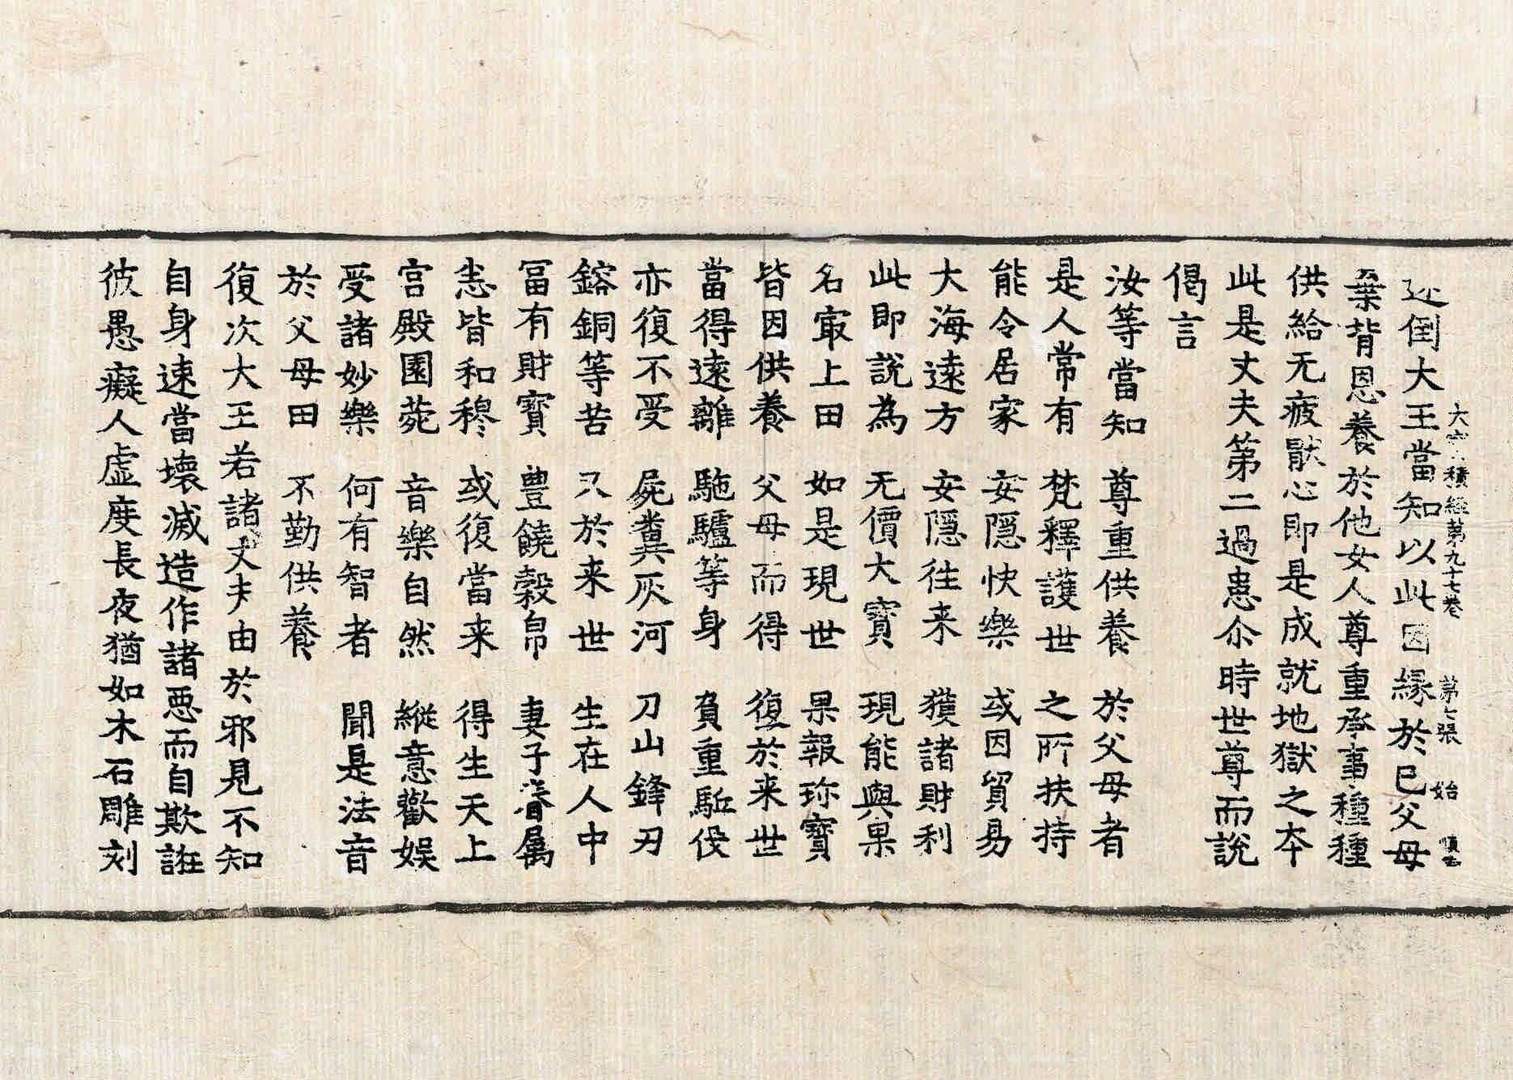 大寶積經第九十七卷　第七張　始
逆倒大王當知以此因緣於巳父母
棄背恩養於他女人尊重承事種種
供給无疲猒心即是成就地獄之夲
此是丈夫第二過患尒時世尊而說
偈言
汝等當知　尊重供養　於父母者
是人常有　梵釋護世　之所扶持
能令居家　安隱快樂　或因貿易
大海遠方　安隱往来　獲諸財利
此即說為　无價大寶　現能與果
名㝡上田　如是現世　果報珎寶
皆因供養　父母而得　復於来世
當得遠離　駞驢等身　負重駈役
亦復不受　屍糞灰河　刀山鋒刃
鎔銅等苦　又於来世　生在人中
冨有財寶　豊饒穀帛　妻子眷属
恚皆和穆　或復當来　得生天上
宫殿園苑　音樂自然　縱意歡娱
受諸妙樂　何有智者　聞是法音
於父母田　不勤供養
復次大王若諸丈夫由於邪見不知
自身速當壞滅造作諸惡而自欺誑
彼愚癡人虚度長夜猶如木石雕刻